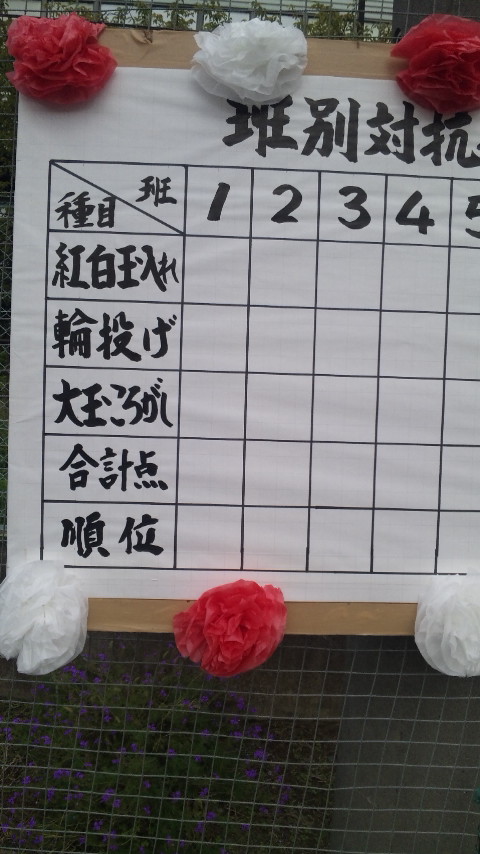 班別対抗
種目 班 1 2 3 4 5
紅白玉入れ
輪投げ
大玉ころがし
合計点
順位